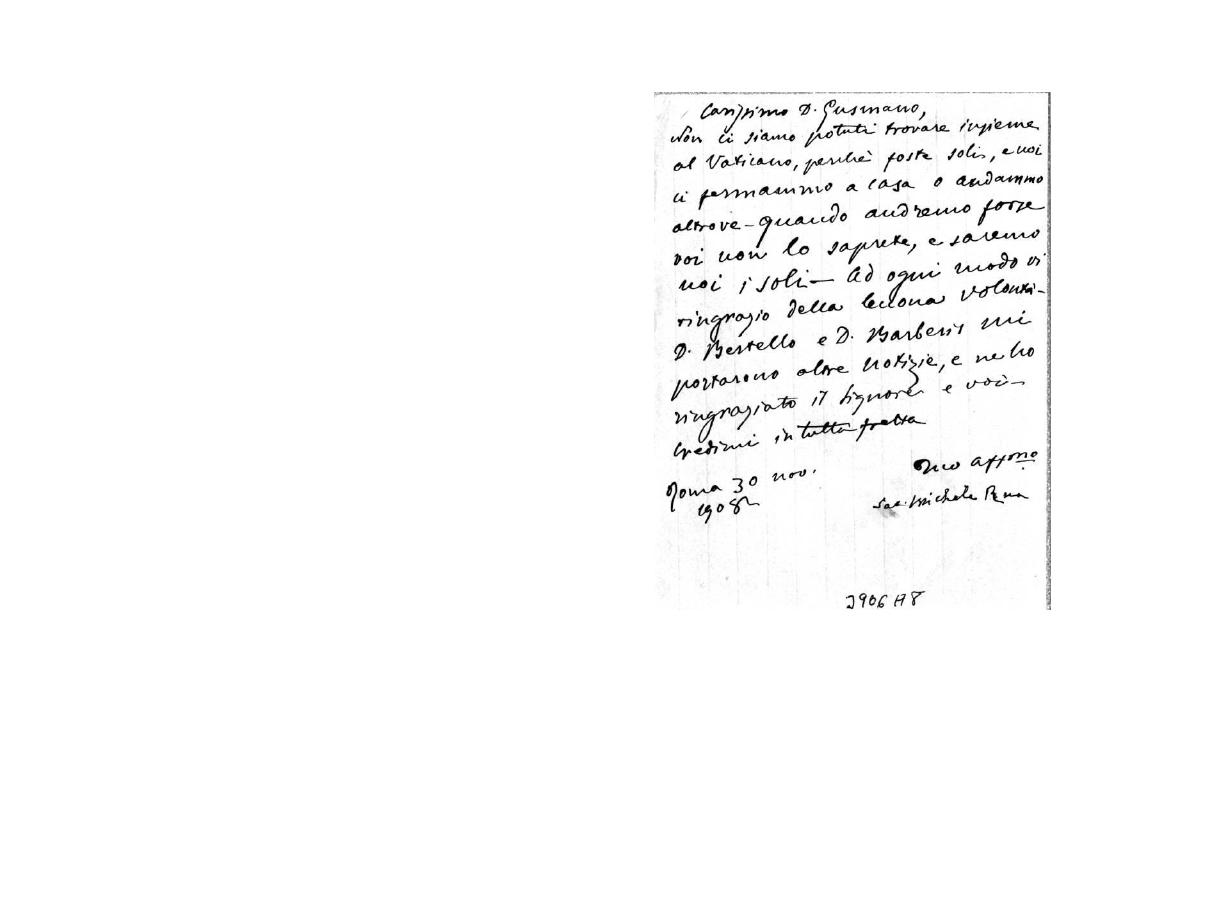 Carissimo D. Gusmano,
Non ci siamo potuti trovare insieme
al Vaticano, perchè foste soli, e noi
ci fermammo a casa o andammo
altrove - quando andremo forse
voi non lo saprete, e saremo
noi i soli — Ad ogni modo vi
ringrazio della buona volontà -
D. Bertello e D. Barberis mi
portarono altre notizie, e ne ho
ringraziato il Signore e voi -
Credimi in tutta fretta
Tuo aff.mo
Roma 30 nov.
1908
Sac. Michele Rua
2906 A8